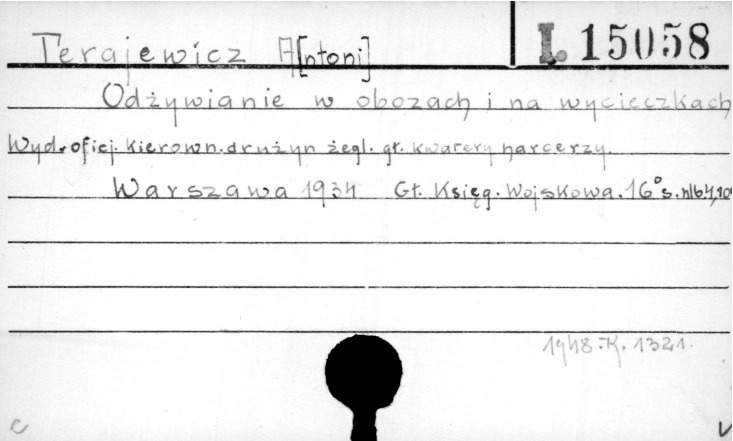 Terajewicz A[ntoni]
L 15058
Odżywianie w obozach i na wycieczkach
Wyd. oficj. kierown. drużyn żegl. gł. kwatery harcerzy.
Warszawa 1934 Gł. Księg. Wojskowa. 16° s. nlb. 4,
1948.K. 1321.
c
v